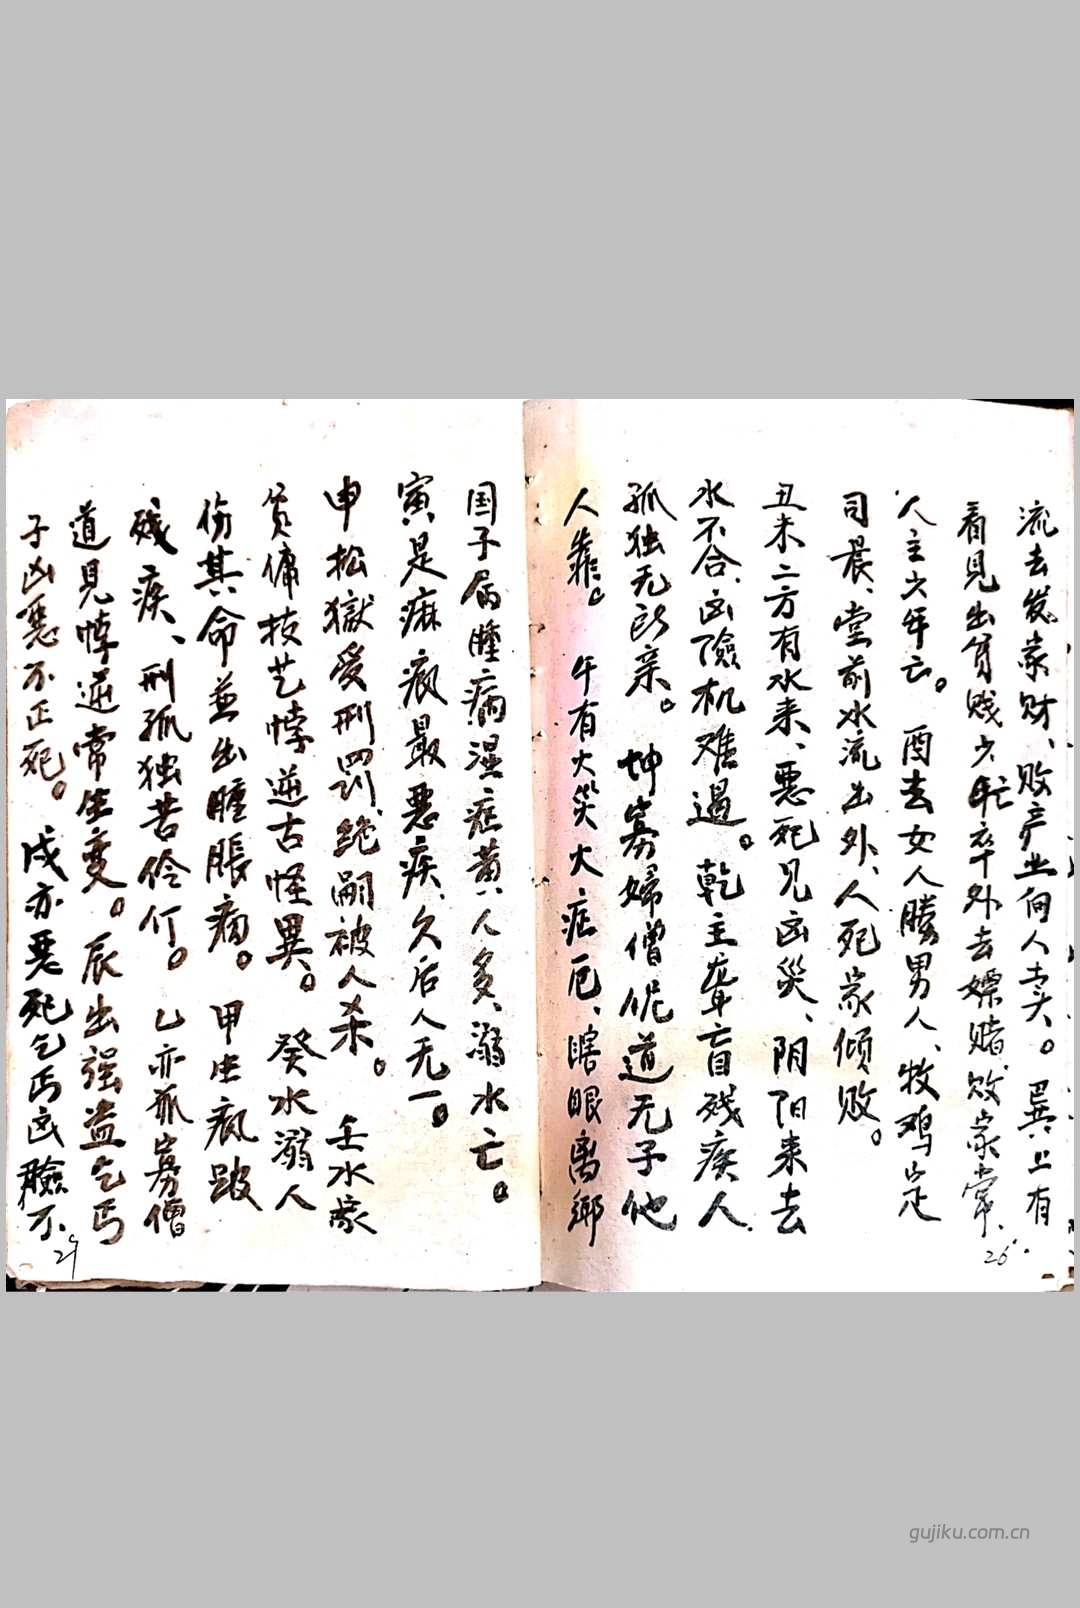 流去发家财、败产业向人卖。巽上有
看见出貧贱少年卒外去嫖赌、败家常、
人主少年亡。酉去女人勝男人、牧鸡定
司晨、堂前水流出外、人死家倾败。
丑未二方有水来、惡死见凶災、阴阳来去
水不合、凶險机难過。乾主聋盲残疾人
孤独无所亲。坤寡婦僧伲道无子他
人靠。午有火災大症厄、瞎眼离鄉
国子屑腫病湿症黄人多、溺水亡。
寅是麻疯最惡疾、久后人无一。
申松獄受刑罚、绝嗣被人杀。壬水家
貧傭技艺悖逆古怪異。癸水溺人
伤其命並出腫脹病。甲出疯跛
殘疾、刑孤独苦伶仃。乙亦孤寡僧
道見悖逆常生变。辰出强盗乞丐
子凶惡不正死。戌亦惡死乞丐凶險不
26
29
gujiku.com.cn